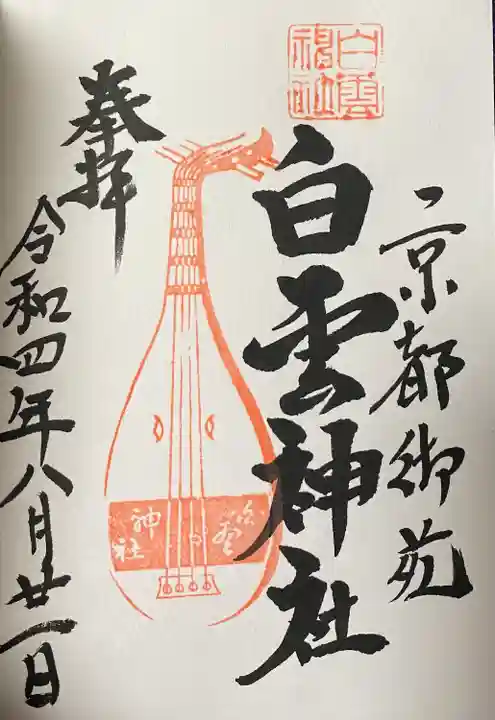 京都御苑
白雲神社
白雲神社
白雲
神社
奉拝
令和四年八月廿一日